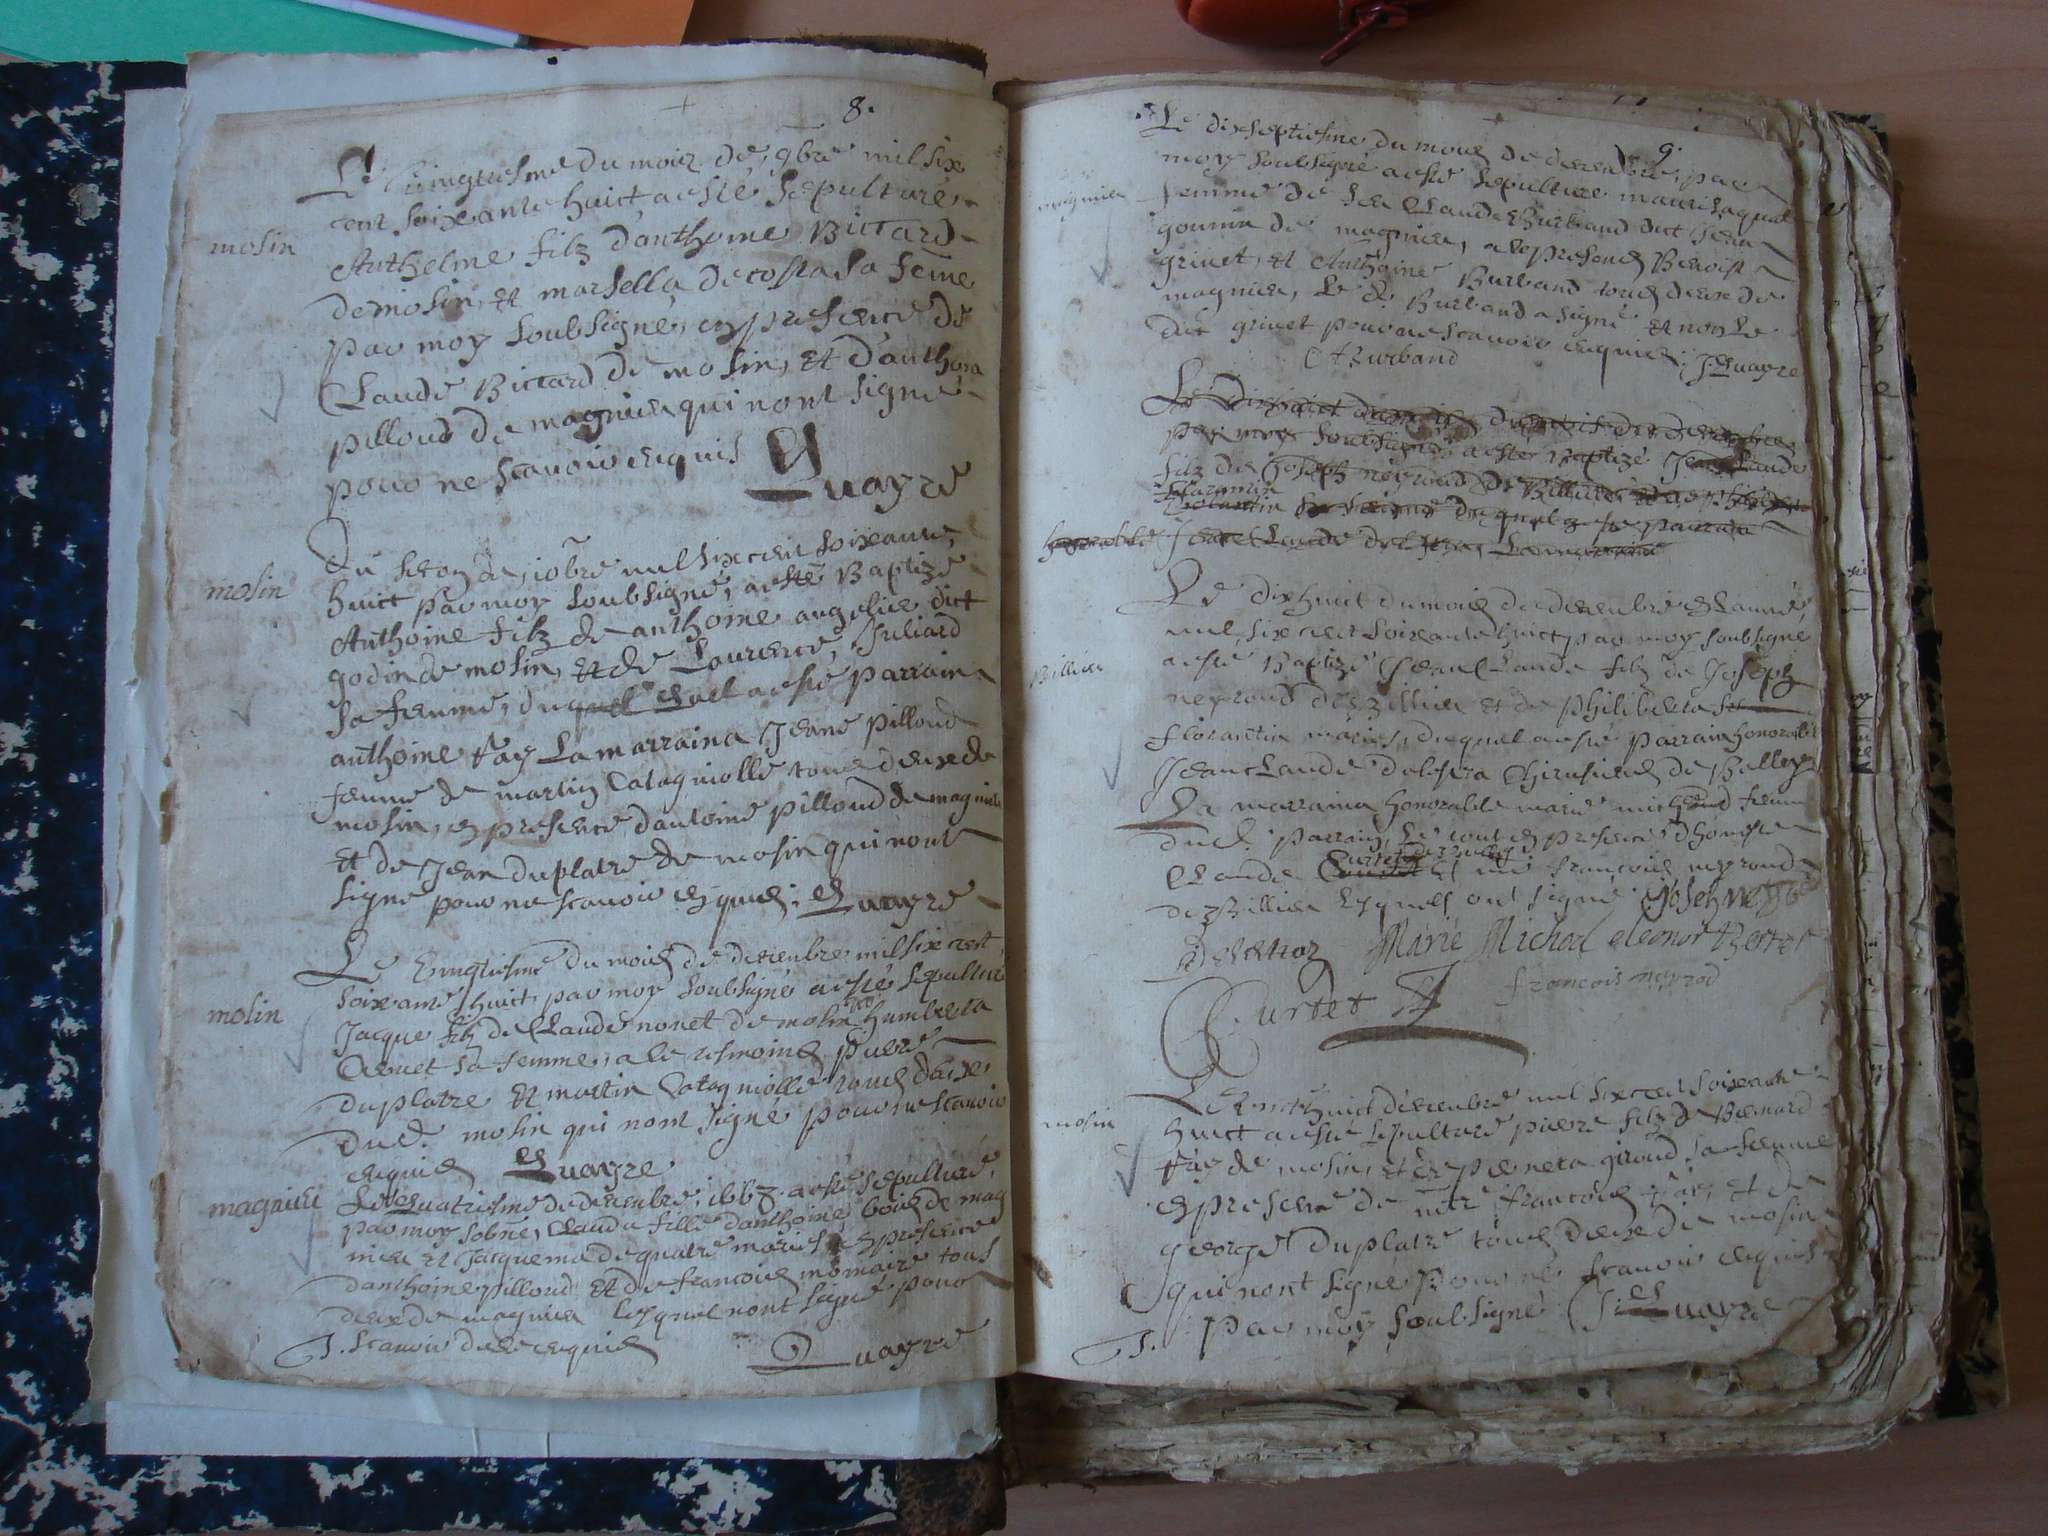 8.
Le vingtiesme du mois de 9bre mil six
cent soixante huict a esté sepulturé
molin
Anthelme filz d'anthoine Bittard
de molin, et marsella de costa sa feme
par moy soubsigné, en presence de
Claude Bittard de molin, et d'anthoine
pilloud de magnieu qui n'ont signé
pour ne scavoir enquis
Quayre
Du second de, 10bre mil six cent soixante
molin
huict par moy soubsigné, a esté Baptizé
Anthoine filz de anthoine dict
godin de molin, et de Laurence, Juliard
sa femme, duquel a esté parrain
anthoine fay La marraina Jeane pilloud
femme de martin Catagniolle tous deux de
molin, en presence d'antoine pilloud de magnieu
et de Jean duplatre de molin qui n'ont
signé pour ne scavoir enquis; Quayre
Le vingtiesme du mois de decembre mil six cent
soixante huict par moy soubsigné a esté sepulturé
molin
Jacque filz de Claude nonet de molin et humberta
sa femme, a le tesmoins pierre
duplatre et martin Catagniolle tous deux
dud. molin qui n'ont signé pour ne scavoir
enquis Quayre
magnieu
Le quatriesme de decembre, 1668 a esté sepulturé,
par moy sobné, Clauda fille d'anthoine bouis de mag
nieu et Jacquema de quatre maries, en presence
d'anthoine pilloud et de francois momaire tous
deux de magnieu lesquel n'ont signé pour
scavoir de ce enquis Quayre
9.
Le dixseptiesme du mois de decembre, par
moy soubsigné a esté sepulturee
magnieu
femme de feu Claude Burband dict Jean
gonnin de magnieu, a le presences Benoist
grinet, et Anthoine Burband tous deux de
magnieu, Le d. Burband a signé et non Le
dit grinet pour ne scavoir enquis; J. Quayre
A Burband
Le dixhuict du mois de decembre
par moy soubsigné, a esté Baptizé Jean Claude
filz de Joseph neyroud de Billieu
Florantin sa femme duquel parrain
honorable Jean Claude La marraine
Le dixhuict du mois de decembre et Lanné
mil six cent soixante huict par moy soubsigné
Billieu
a esté Baptizé Jean Claude filz de Joseph
neyroud de Billieu et de philiberta
florantin mariés, duquel a esté parrain honorable
Jean Claude Chirusien de Belley
La marraina honorable marie michoud femme
dud. parrain, Le tout en presence d'honeste
Claude Curtet et francois neyroud
de Billieu Lesquels ont signé Joseph neyrod
Marie Michod eleonor
francois neyrod
Curtet
Le vinthuict decembre mil six cent soixante
molin
huict a esté sepulturé pierre filz de Bernard
fay de molin, et de peneta giroud sa femme
en presence de mre francois fay, et de
george duplatre tous deux de molin
qui n'ont signé pour ne scavoir enquis
par moy soubsigné J. Quayre